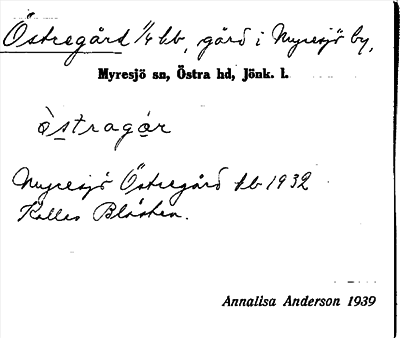 Östregård 1/4 kb, gård i Myresjö by,
Myresjö sn, Östra hd, Jönk. l.
òstragár
Myresjö Östregård tb 1932
Kallas Blåsten.
Annalisa Anderson 1939